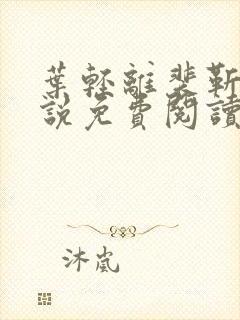 葉輕離裴靳
說免費閱讀
沐嵐